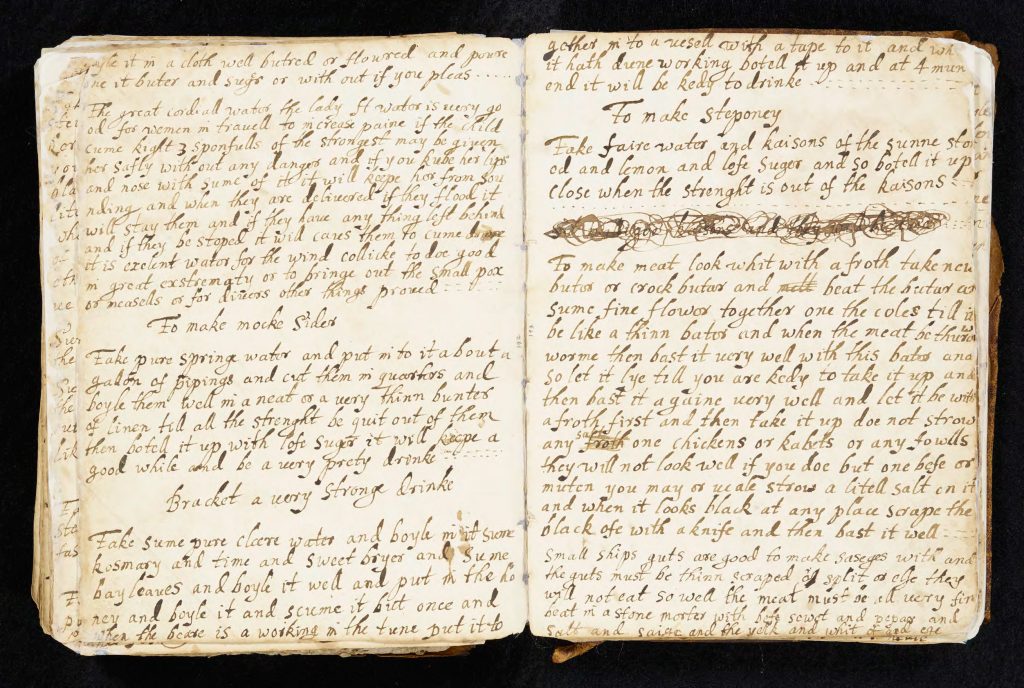 boyle it in a cloth well butred or floured and poure
one it buter and sugr or with out if you pleas
The great cordiall water the lady St water is very go
od for women in travell to increase paine if the child
cume right 3 sponfulls of the strongest may be given
her safly without any danger and if you rube her lips
and nose with sume of it it will keepe her from sou
nding and when they are delivered if they flood it
will stay them and if they have any thing left behind
and if they be stoped it will caus them to cume
it is exelent water for the wind collicke to doe good
in great exstrematy or to bringe out the small pox
or measells or for divers other things proved
To make mocke Sider
Take pure springe water and put in to it about a
gallon of pipings and cut them in quarters and
boyle them well in a neat or a very thinn bunter
of linen till all the strenght be quit out of them
then botell it up with lofe suger it will keepe a
good while and be a very prety drinke
Bracket a very stronge drinke
Take sume pure cleere water and boyle in it sume
rosmary and time and sweet bryer and sume
bay leaves and boyle it well and put in the ho
ney and boyle it and scume it bitt once and
when the beare is a working in the tune put it to
gether in to a vesell with a tape to it and
it hath dune working botell it up and at 4 mun
end it will be redy to drinke
To make steponey
Take faire water and raisons of the sunne ston
ed and lemon and lofe suger and so botell it up
close when the strenght is out of the raisons
To make meat look whit with a froth take new
butar or crock butar and beat the butar
sume fine flower together one the coles till it
be like a thinn bator and when the meat be
worme then bast it very well with this bator and
so let it lye till you are redy to take it up and
then bast it againe very well and let it be with
a froth first and then take it up doe not strow
any salt one chickens or rabets or any fowlls
they will not look well if you doe but one befe or
muten you may or veale strow a litell salt on it
and when it looks black at any place scrape the
black ofe with a knife and then bast it well
small ships guts are good to make saseges with and
the guts must be thinn scraped or split or else they
will not eat so well the meat must be all very fin
beat in a stone morter with befe sewet and pepar and
salt and and the yolk and whit of